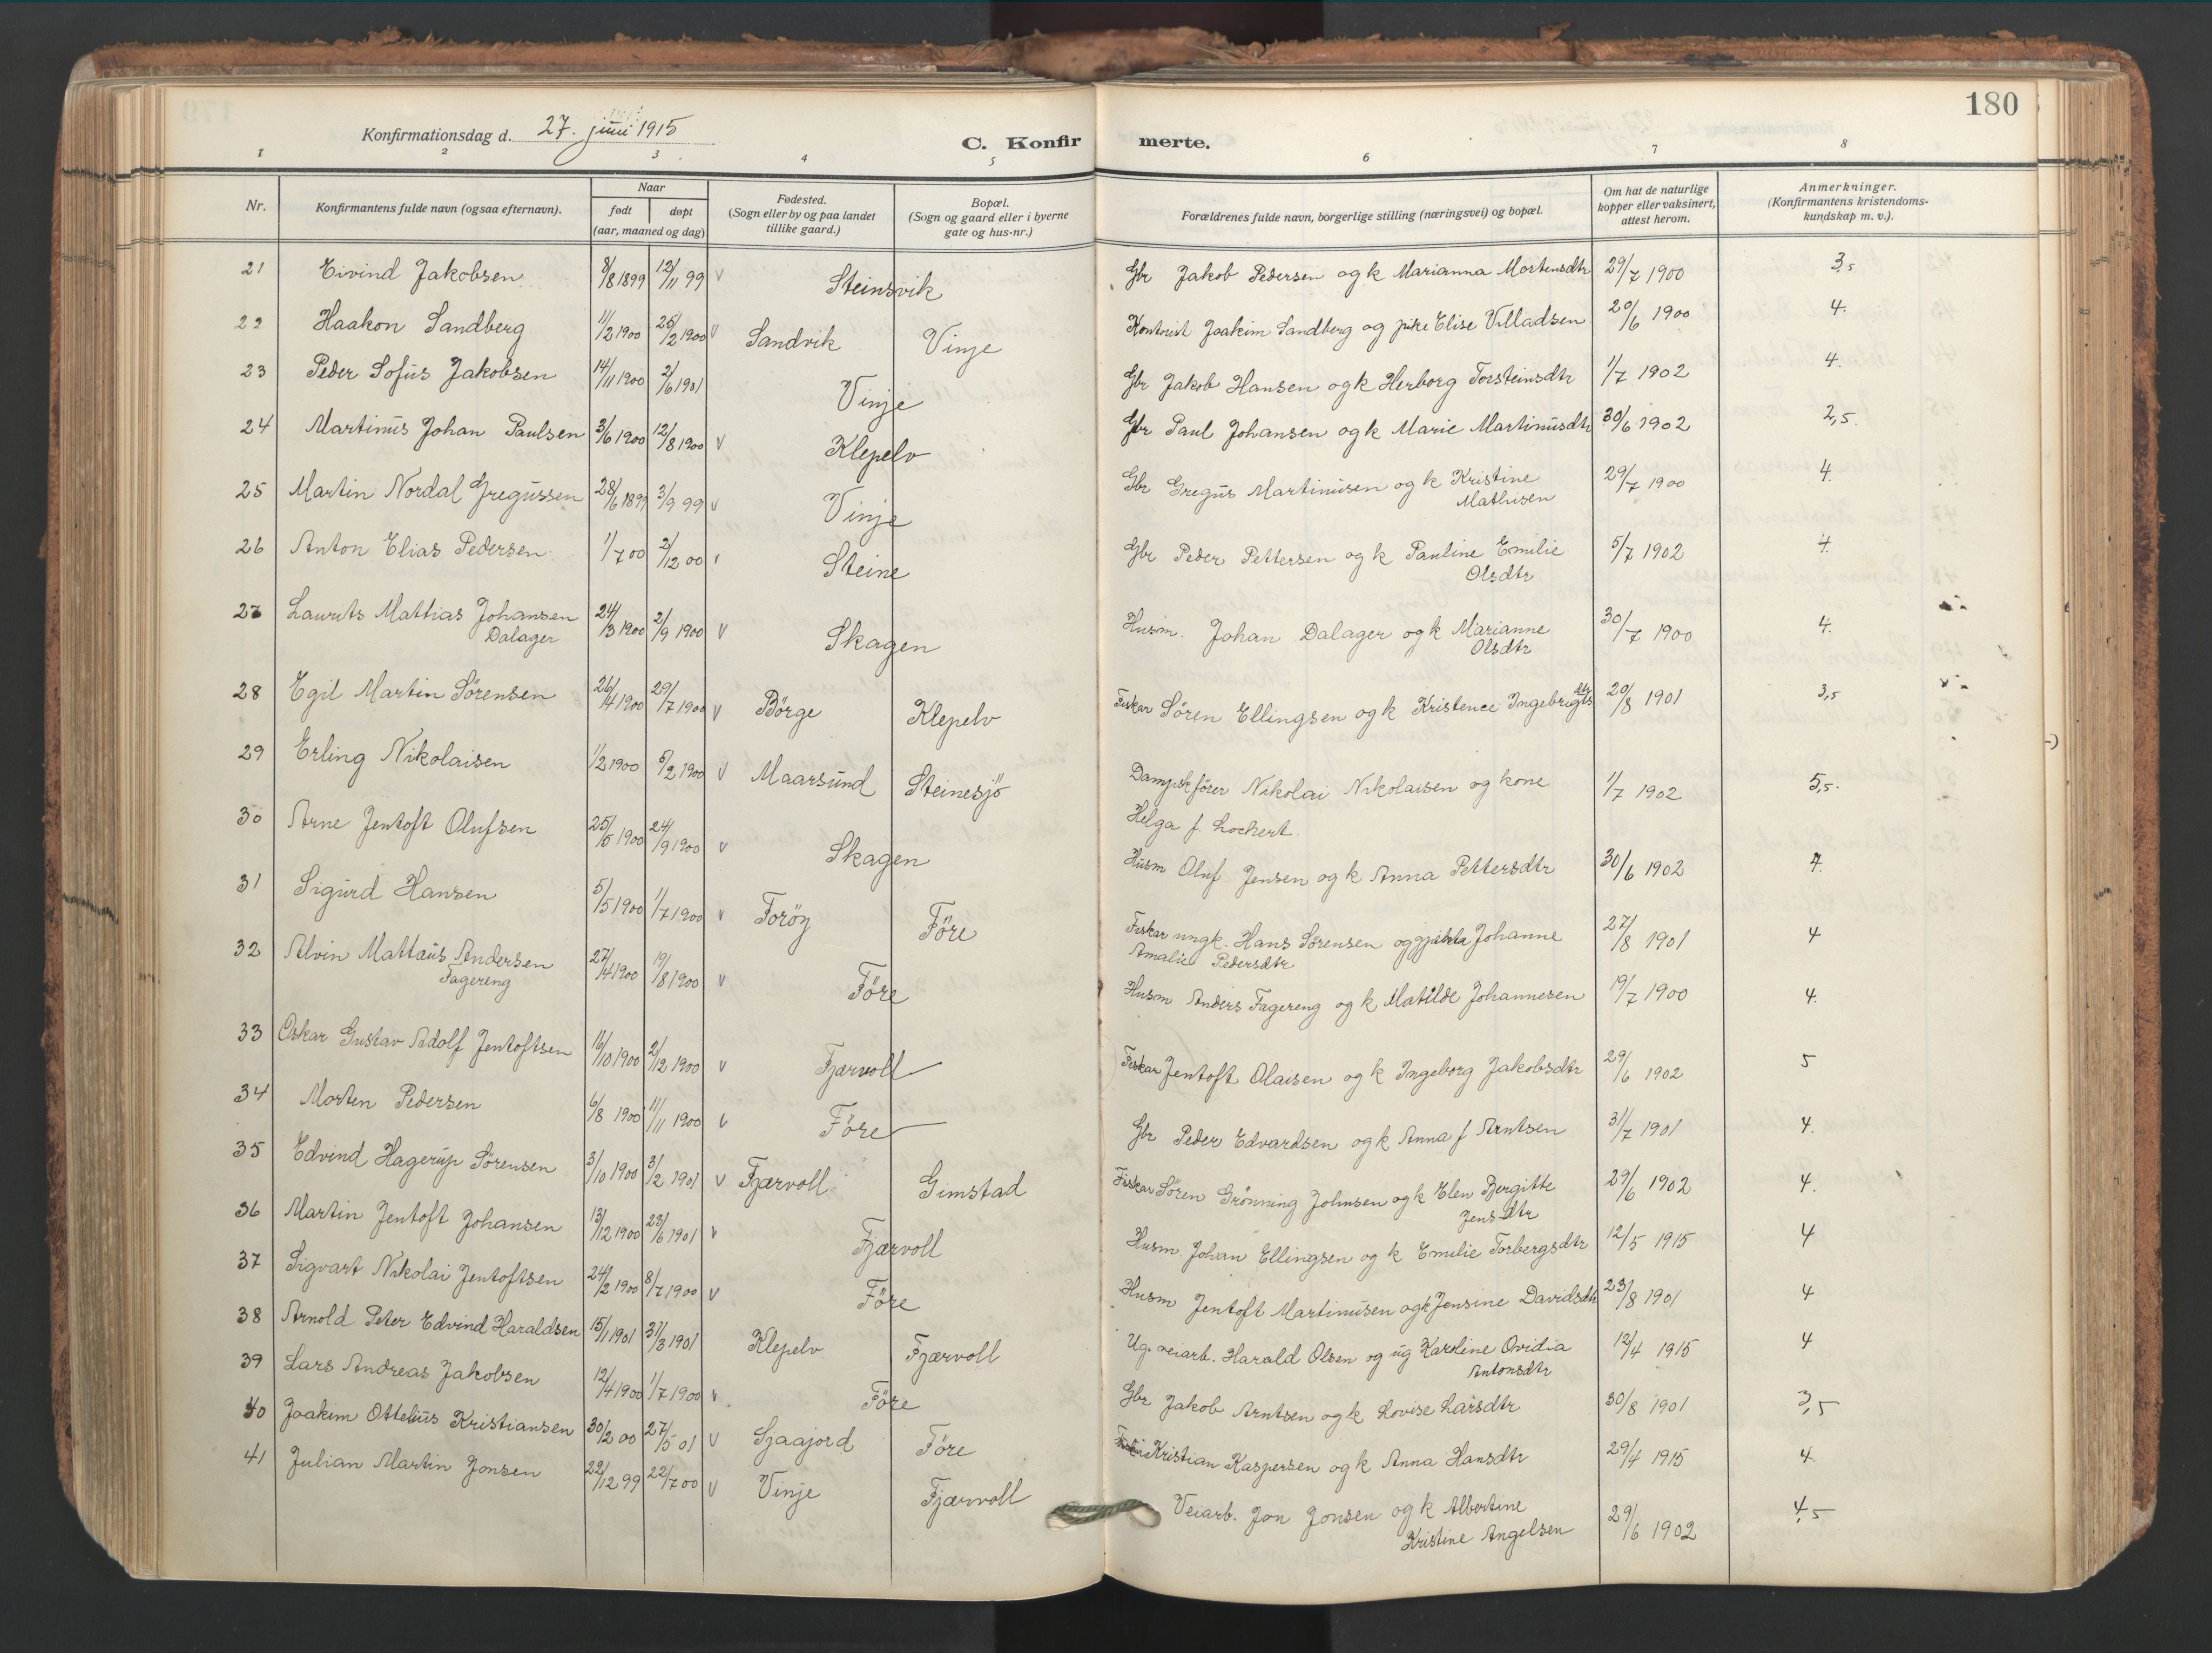 180
Konfirmationsdag d. 27. juni 1915
C. Konfirmerte.
1 2 3 4 5 6 7 8
Nr. Konfirmantens fulde navn (ogsaa efternavn). Naar født døpt (aar, maaned og dag) Fødested. (Sogn eller by og paa landet tillike gaard.) Bopæl. (Sogn og gaard eller i byerne gate og hus-nr.) Forældrenes fulde navn, borgerlige stilling (næringsvei) og bopæl. Om hat de naturlige kopper eller vaksinert, attest herom. Anmerkninger. (Konfirmantens kristendomskundskap m. v.).
21 Eivind Jakobsen 8/8 1899 12/11 99 v Steinsvik Gbr Jakob Pedersen og k Marianna Mortensdtr 29/7 1900 3,5
22 Haakon Sandberg 1/2 1900 25/2 1900 v Sandvik Vinje Kontorist Joakim Sandberg og pike Elise Villadsen 20/6 1900 4.
23 Peder Sofus Jakobsen 14/11 1900 2/6 1901 Vinje Gbr Jakob Hansen og k Herborg Torsteinsdtr 1/7 1902 4.
24 Martinus Johan Paulsen 3/6 1900 12/8 1900 v Klepelv Gbr Paul Johansen og k Marie Martinusdtr 30/6 1902 2,5.
25 Martin Nordal Gregussen 28/6 1899 3/9 99 v Vinje Gbr Gregus Martinusen og k Kristine 29/7 1900 4.
Mathisen
26 Anton Elias Pedersen 1/7 00 2/12 00 v Steine Gbr Peder Pettersen og k Pauline Emilie 5/7 1902 4.
Olsdtr
27 Laurits Mattias Johansen 24/3 1900 2/9 1900 v Skagen Husm. Johan Dalager og k Marianne 30/7 1900 4.
Dalager Olsdtr
28 Egil Martin Sörensen 26/4 1900 29/7 1900 v Börge Klepelv Fiskar Sören Ellingsen og k Kristence Ingebrigtsdtr 20/8 1901 3,5
29 Erling Nikolaisen 1/2 1900 5/2 1900 v Maarsund Steinesjö Dampskförer Nikolai Nikolaisen og kone 1/7 1902 5,5.
Helga f. Lochert.
30 Arne Jentoft Olufsen 25/5 1900 24/9 1900 v Skagen Husm Oluf Jensen og k Anna Pettersdtr 30/6 1902 4.
31 Sigurd Hansen 5/5 1900 1/7 1900 v Foröy Före Fiskar ungk. Hans Sörensen og Johanne 27/8 1901 4
Amalie Pedersdtr
32 Alvin Mattæus Andersen 27/4 1900 19/8 1900 v Före Husm Anders Fagereng og k Matilde Johannesen 19/7 1900 4.
Fagereng
33 Oskar Gustav Adolf Jentoftsen 16/10 1900 2/12 1900 v Fjærvoll Fiskar Jentoft Olaisen og k Ingeborg Jakobsdtr 29/6 1902 5
34 Morten Pedersen 6/8 1900 11/11 1900 v Före Gbr Peder Edvardsen og k Anna f Arntsen 31/7 1901 4.
35 Edvind Hagerup Sörensen 3/10 1900 3/2 1901 v Fjærvoll Gimstad Fiskar Sören Grönning Johnsen og k Elen Bergitte 29/6 1902 4.
Jensdtr
36 Martin Jentoft Johansen 13/12 1900 23/6 1901 v Fjærvoll Husm. Johan Ellingsen og k Emilie Torbergsdtr 12/5 1915 4
37 Sigvart Nikolai Jentoftsen 24/2 1900 8/7 1900 v Före Husm Jentoft Martinusen og k Jensine Davidsdtr 23/8 1901 4
38 Arnold Peter Edvind Haraldsen 15/1 1901 31/3 1901 Klepelv Fjærvoll Ug. veiarb. Harald Olsen og ug Karoline Ovidia 12/4 1915 4
Antonsdtr
39 Lars Andreas Jakobsen 12/4 1900 1/7 1900 v Före Gbr Jakob Arntsen og k Lovise Larsdtr 30/8 1901 3,5
40 Joakim Ottelius Kristiansen 30/2 00 27/5 01 v Sjaajord Före Kristian Kaspersen og k Anna Hansdtr 29/4 1915 4.
41 Julian Martin Jonsen 22/12 99 22/7 00 v Vinje Fjærvoll Veiarb. Jon Jonsen og k Albertine 29/6 1902 4,5
Kristine Angelsen